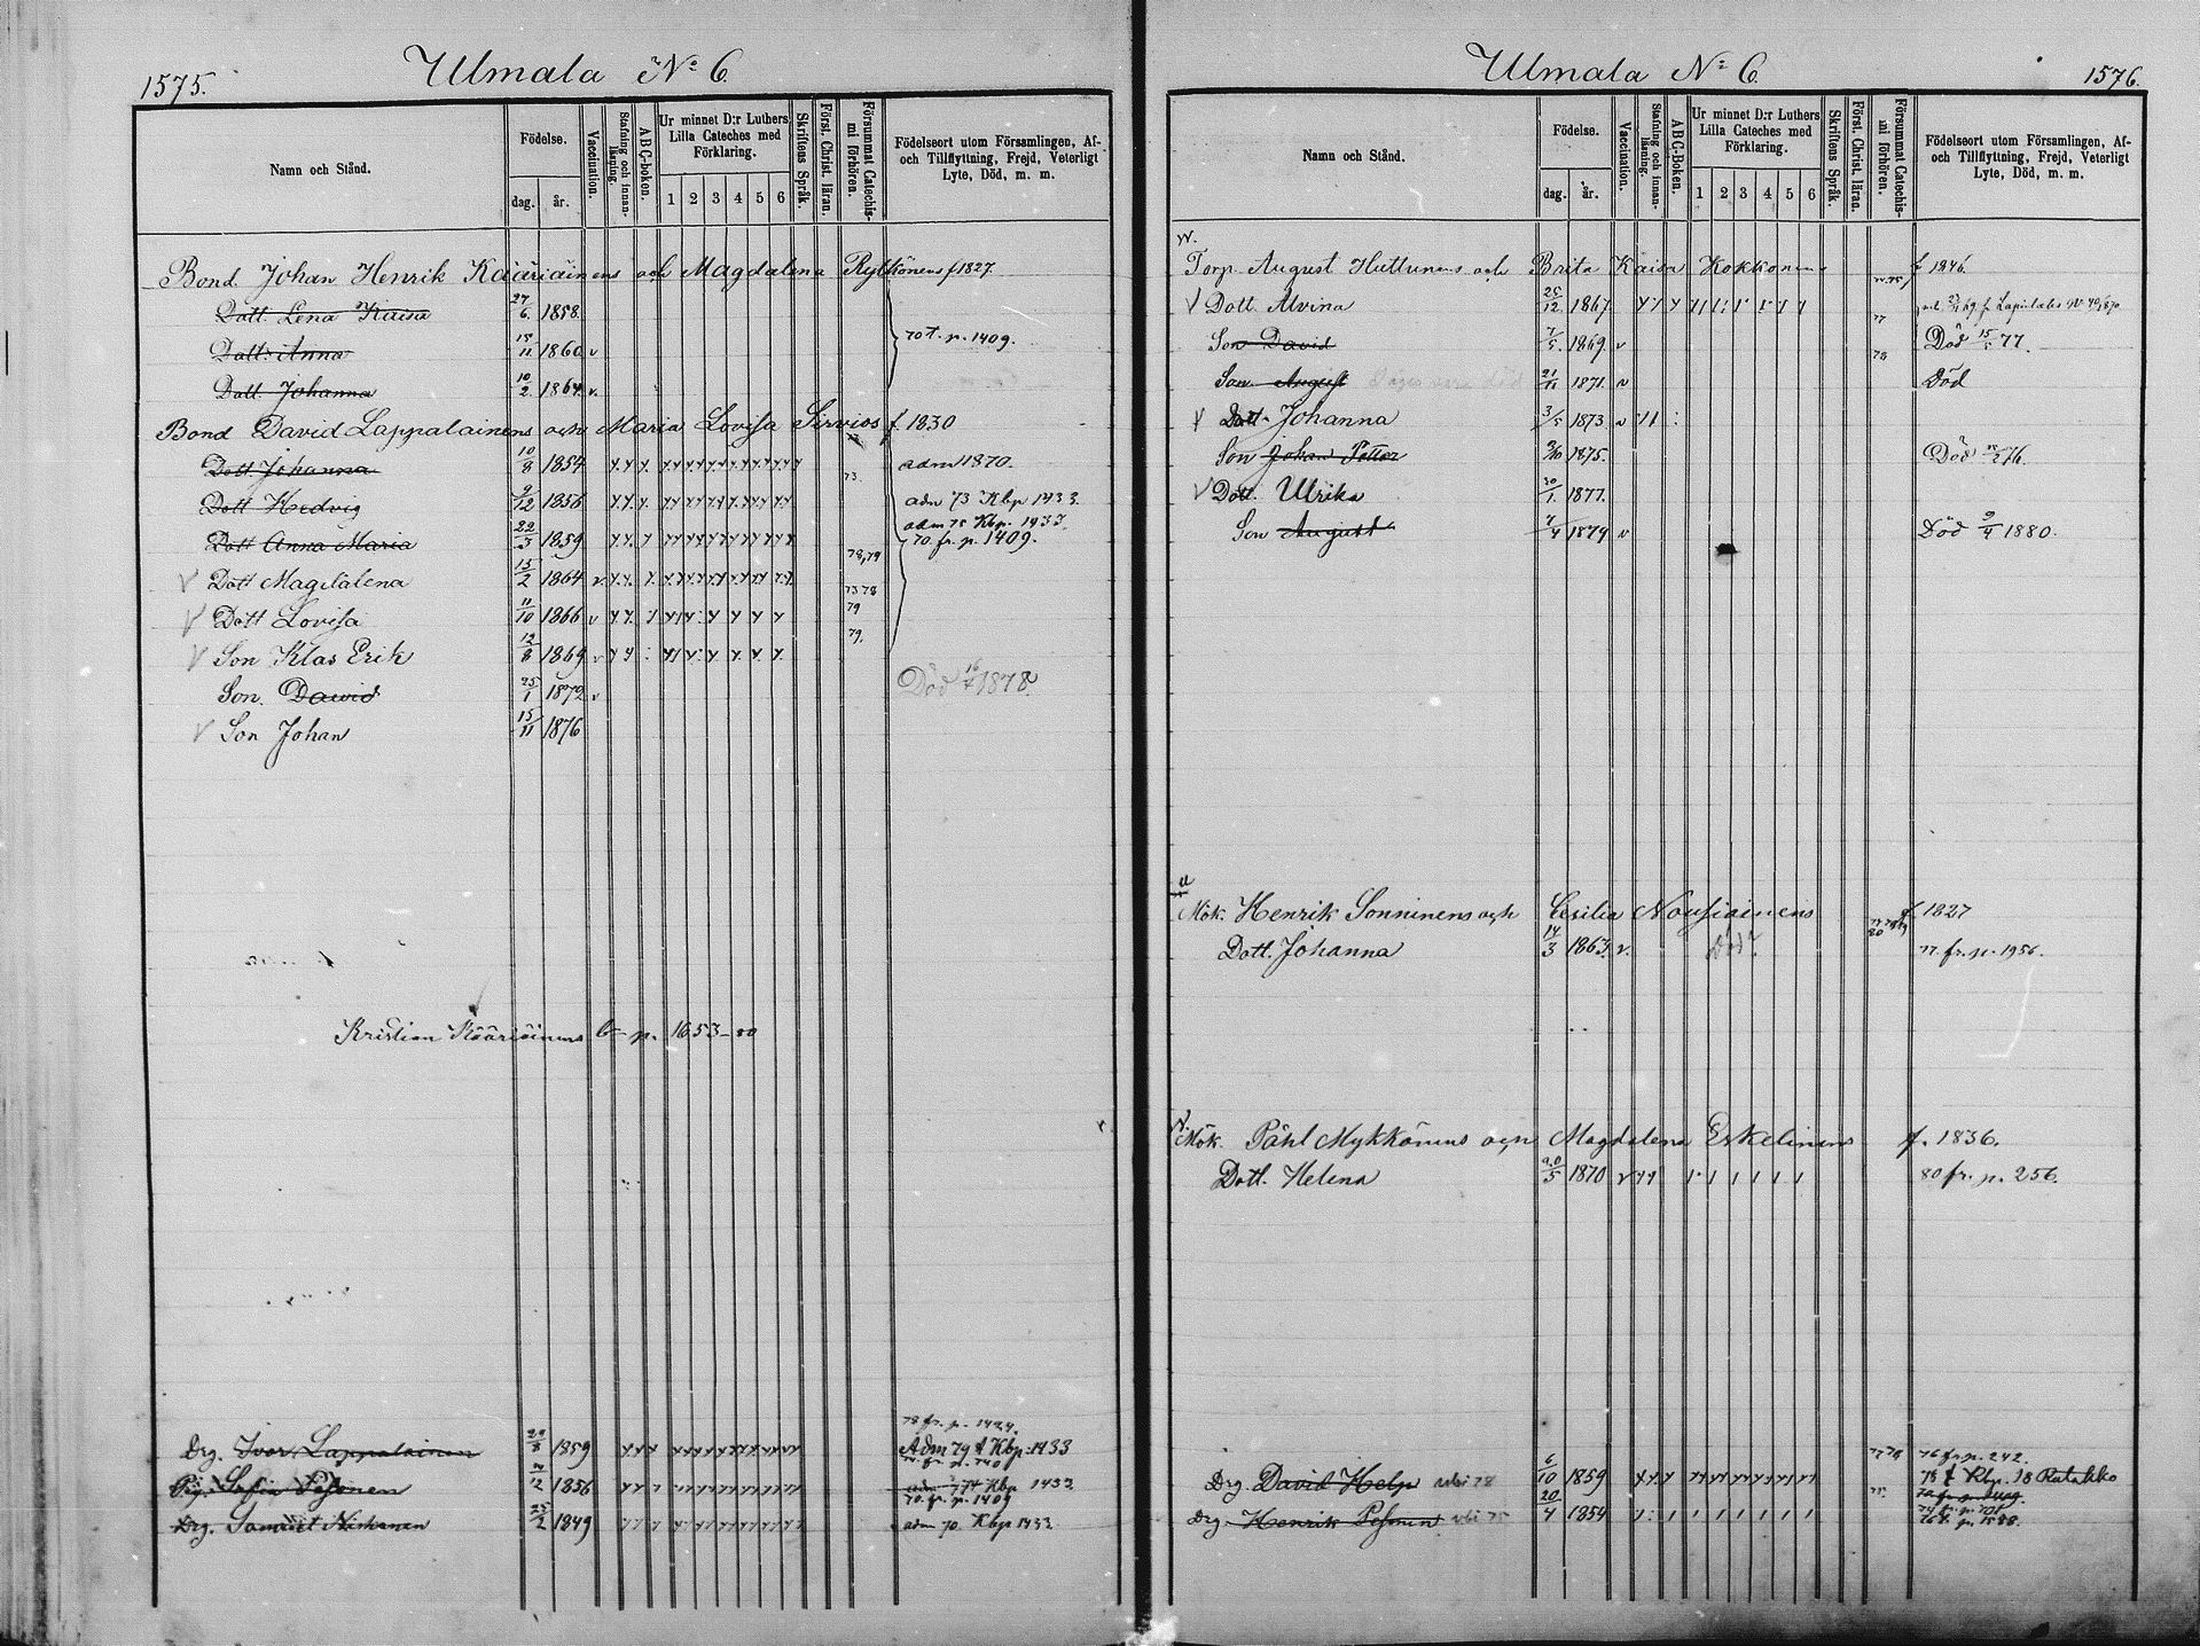 1575.
Ulmala No 6.
Namn och Stånd.
Födelse.
dag. år.
Vaccination.
Stafning och innanläsning.
ABC-boken.
Ur minnet D:r Luthers Lilla Cateches med Förklaring.
1 2 3 4 5 6
Skriftens Språk.
Först. Christ. läran.
Försummat Catechismi förhören.
Födelseort utom Församlingen, Af- och Tillflyttning, Frejd, Veterligt Lyte, Död, m. m.
Bond. Johan Henrik Kääriäinens och Magdalena Rytkönens f 1827.
Dott. Lena Kaisa 27/6. 1858.
Dott. Anna 15/11 1860 v
Dott. Johanna 10/2 1864 v.
70 t. p. 1409.
Bond David Lappalainens och Maria Lovisa Sirviös f. 1830
Dott Johanna 10/8 1854 adm 1870.
Dott Hedvig 9/12 1856 73. adm 73 Kbp 1433.
Dott Anna Maria 22/3 1859 adm 75 Kbp. 1433.
70. fr. p. 1409.
V Dott Magdalena 15/2 1864 v. 78,79
V Dott Lovisa 11/10 1866 v 73 78 79
V Son Klas Erik 12/8 1869 v 79.
Son. David 25/1 1872 v Död 16/ 1878.
V Son Johan 15/11 1876
Kristian Kääriäinens b p. 1653-80
78 fr. p. 1424.
Drg. Ivar Lappalainen 29/8 1859 Adm 79 t Kbp. 1433
Pig. Sofia Pesonen /12 1856 adm 74 Kbp 1433
70. fr. p. 1409
Drg. Samuel Niskanen 25/2 1849 adm 70 Kbp 1433
1576.
Ulmala No 6.
Namn och Stånd.
Födelse.
dag. år.
Vaccination.
Stafning och innanläsning.
ABC-boken.
Ur minnet D:r Luthers Lilla Cateches med Förklaring.
1 2 3 4 5 6
Skriftens Språk.
Först. Christ. läran.
Försummat Catechismi förhören.
Födelseort utom Församlingen, Af- och Tillflyttning, Frejd, Veterligt Lyte, Död, m. m.
Torp. August Huttunens och Brita Kaisa Kokkonens f 1846.
V Dott Alvina 25/12 1867
Son David 7/5. 1869. v 77 Död 15/5 77.
Son August 21/11 1871. v 78 Död
V Dott Johanna 3/5 1873 v
Son Johan Petter /10 1875. Död 76.
V Dott. Ulrika 30/1. 1877.
Son August 7/4 1879 v Död 9/4 1880.
Mök. Henrik Sonninens och Cecilia Nousiainens f. 1827
Dott. Johanna 14/3 1863. v. Död? 77. fr. p. 1956.
Mök. Påhl Mykkänens och Magdalena Eskelinens f. 1836.
Dott. Helena 20/5 1870 v 80 fr. p. 256.
76 fr. p. 242.
Drg. David Help ubi 78 6/10 1859 77 78 78 t Kbp. 18 Rutakko
Drg Henrik Pesonen ubi 75 20/4 1854 75.
76 t. p. 1588.